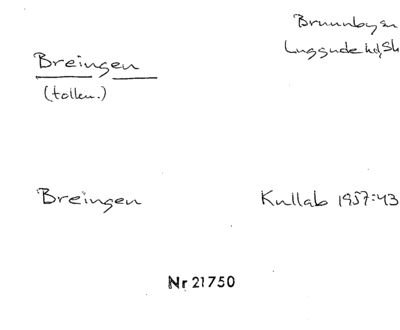 Brunnby sn
Luggude hd, Sk
Breingen
(tolkn.)
Breingen
Kullab 1957:43
Nr 21750